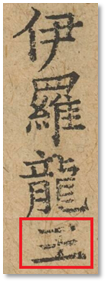 伊羅龍王